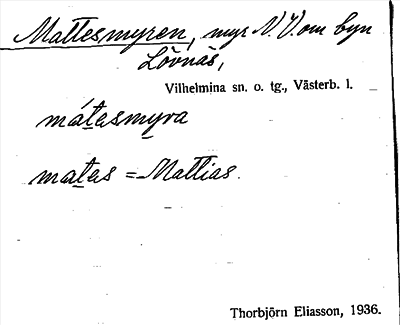 Mattesmyren, myr N.V. om byn
Lövnäs,
Vilhelmina sn. o. tg., Västerb. l.
mátasmyra
matas = Mattias.
Thorbjörn Eliasson, 1936.